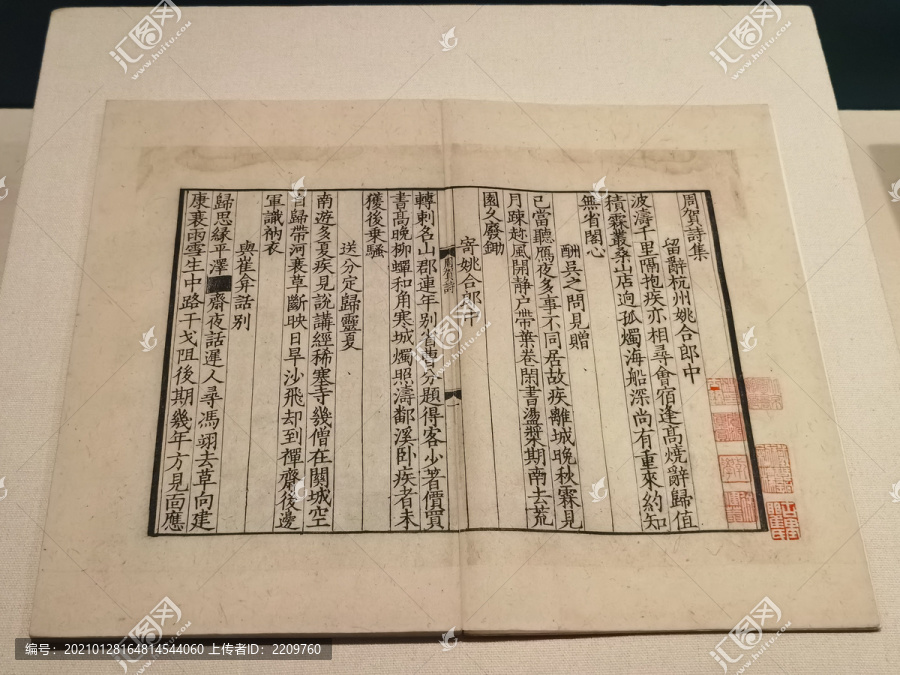 周賀詩集
留辭杭州姚合郎中
波濤千里隔抱疾亦相尋會宿逢高燒辭歸值
積霖叢桑山店迥孤燭海船深尚有重來約知
無省閣心
酬吳之問見贈
已當聽鴈夜多事不同居故疾離城晚秋霖見
月踈趂風開静户帶葉卷閑書盪槳期南去荒
園久廢鋤
寄姚合郎中
轉刺名山郡連年别省曹分題得客少著價買
書高晚柳蟬和角寒城燭照濤鄱溪卧疾者未
獲後乘騷
送分定歸靈夏
南遊多夏疾見說講經稀塞寺幾僧在關城空
自歸帶河衰草斷映日旱沙飛却到禪齋後邊
軍識衲衣
與崔弇話别
歸思緣平澤齋夜話遲人尋馮翊去草向建
康衰雨雪生中路干戈阻後期幾年方見面應
汇图网
www.huitu.com
编号：20210128164814544060 上传者ID：2209760